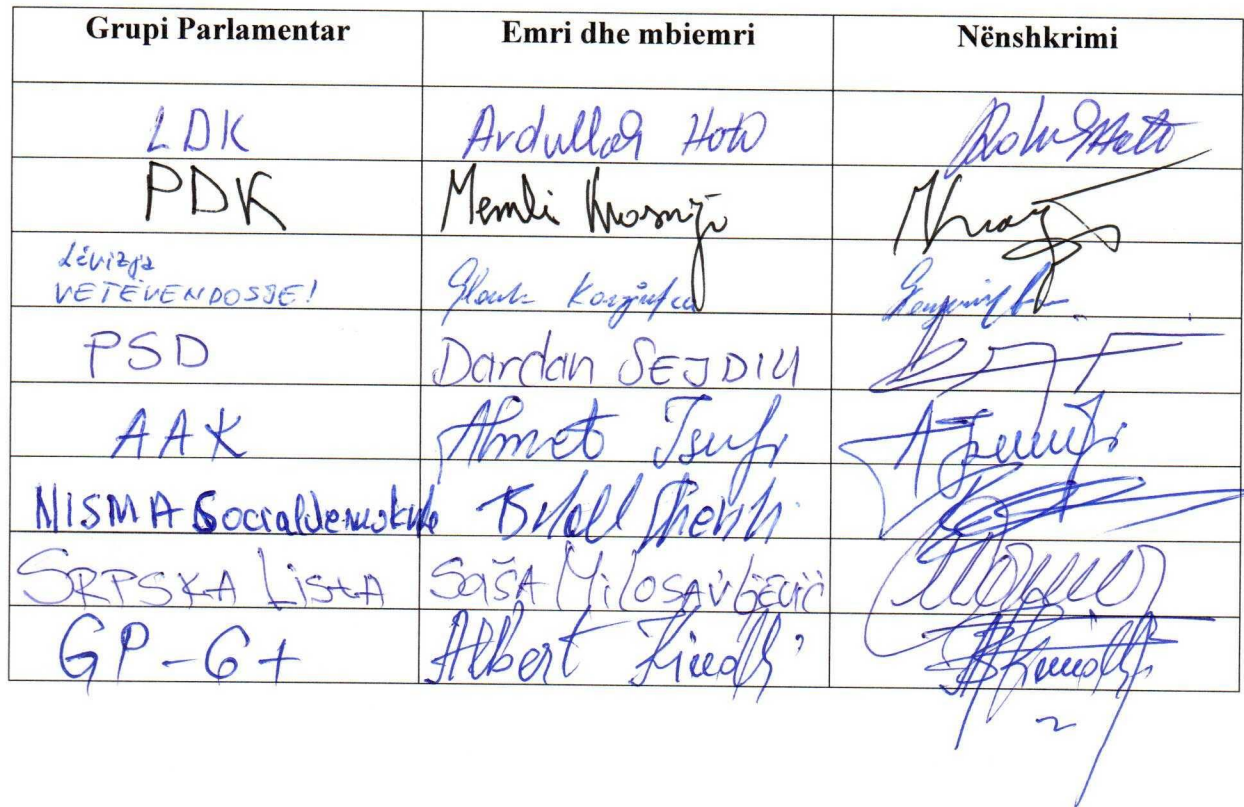 Grupi Parlamentar Emri dhe mbiemri Nënshkrimi
LDK Avdullah Hoti
PDK Memli Krasniqi
Lëvizja
VETËVENDOSJE! Glauk Konjufca
PSD Dardan SEJDIU
AAK Ahmet Isufi
NISMA Socialdemokrate Bilall Sherifi
SRPSKA LiStA SAŠA MiLOSAVLjEViĆ
GP-6+ Albert Kinolli